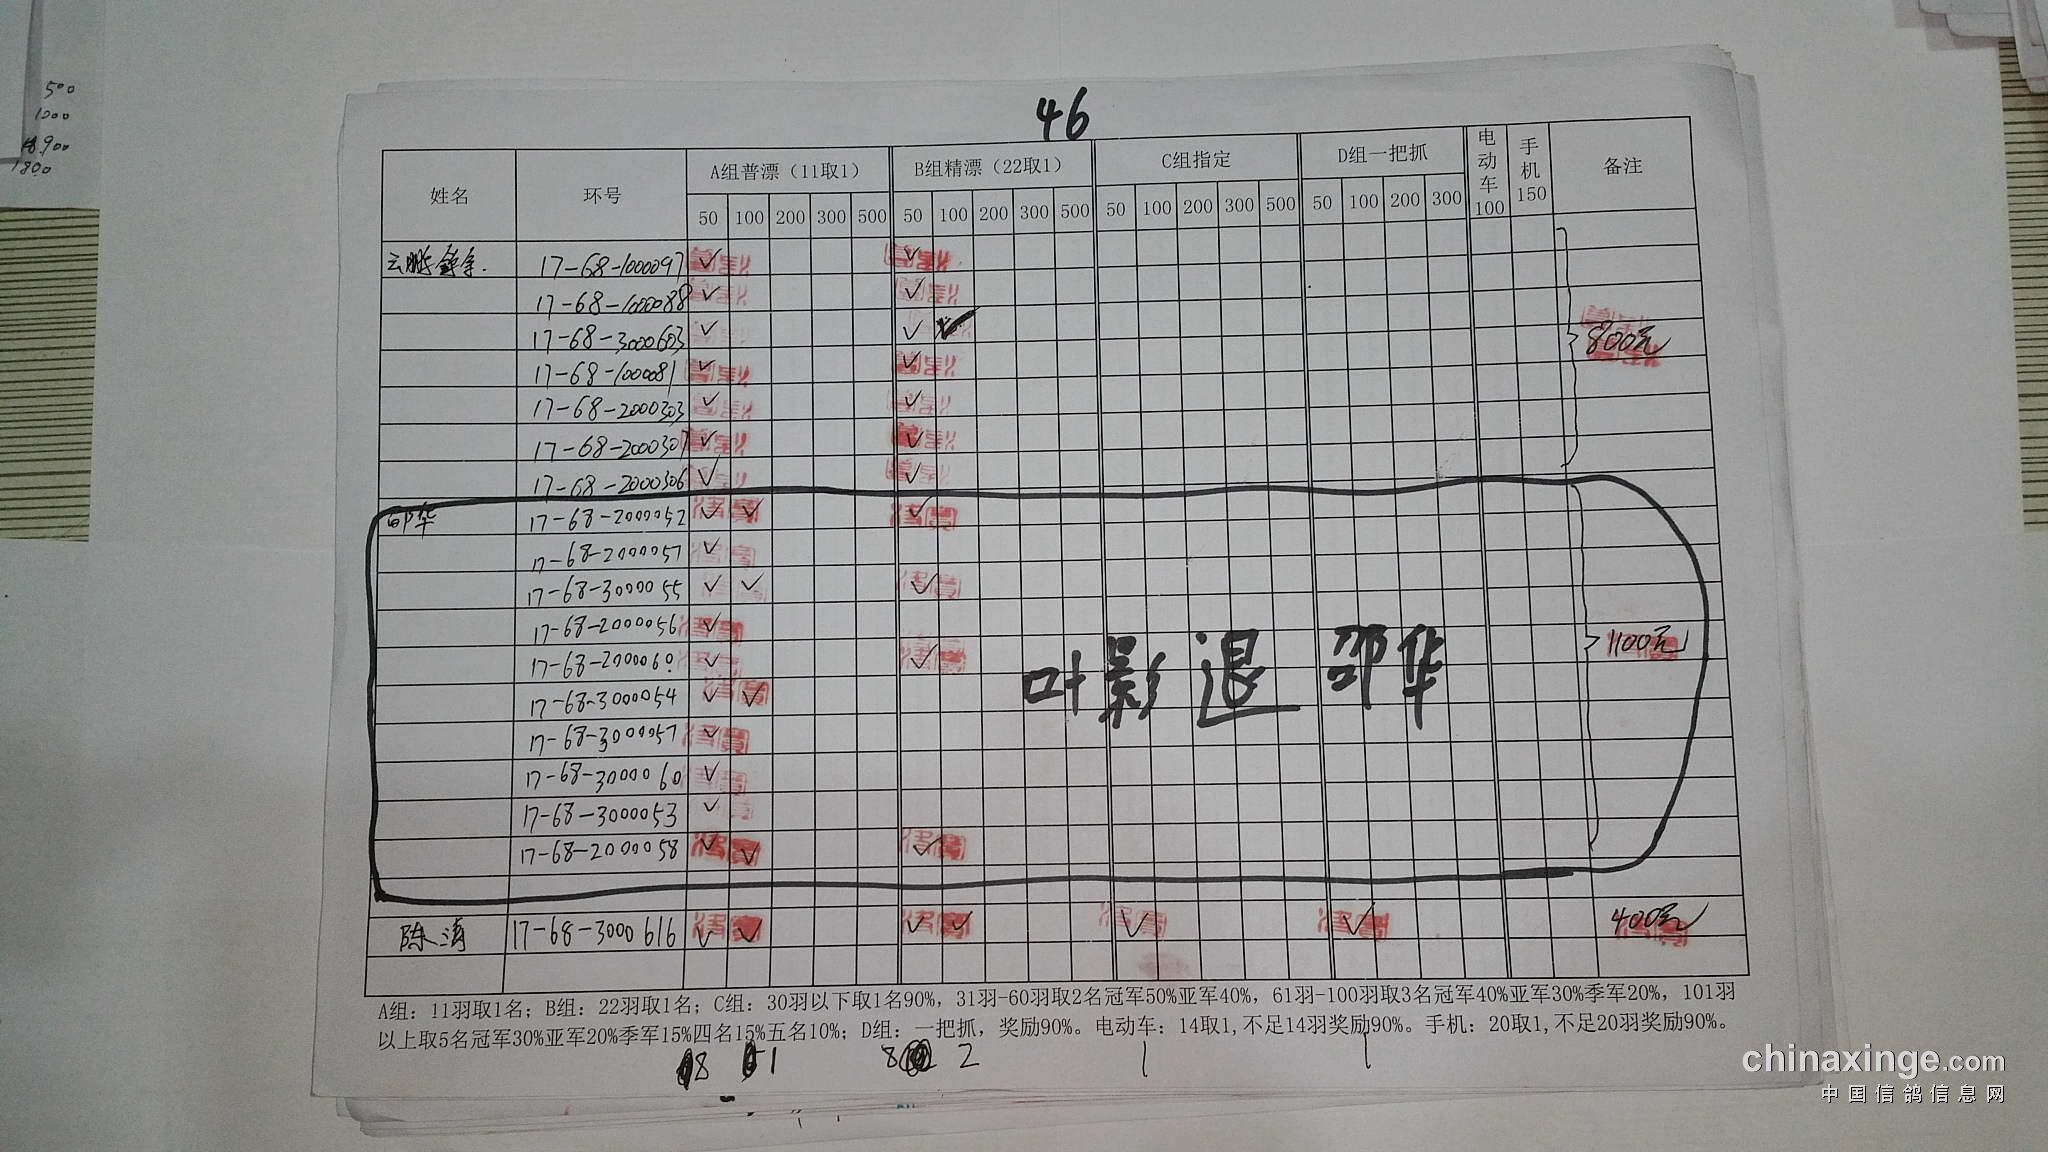 500
1000
18900
1800
46
姓名 环号 A组普漂（11取1） B组精漂（22取1） C组指定 D组一把抓 电动车100 手机150 备注
50 100 200 300 500 50 100 200 300 500 50 100 200 300 500 50 100 200 300
云鹏 17-68-1000097 ✓ ✓
17-68-1000088 ✓ ✓
17-68-3000603 ✓ ✓ ✓ 800元
17-68-1000081 ✓ ✓
17-68-2000303 ✓ ✓
17-68-2000307 ✓ ✓
17-68-2000306 ✓ ✓
邵华 17-68-2000052 ✓ ✓ ✓
17-68-2000057 ✓
17-68-3000055 ✓ ✓ ✓
17-68-2000056 ✓
17-68-2000060 ✓ ✓ 1100元
叶影退 邵华
17-68-3000054 ✓ ✓
17-68-3000057 ✓
17-68-3000060 ✓
17-68-3000053 ✓
17-68-2000058 ✓ ✓ ✓
陈涛 17-68-3000616 ✓ ✓ ✓ ✓ ✓ ✓ 400元
A组：11羽取1名；B组：22羽取1名；C组：30羽以下取1名90%，31羽-60羽取2名冠军50%亚军40%，61羽-100羽取3名冠军40%亚军30%季军20%，101羽
以上取5名冠军30%亚军20%季军15%四名15%五名10%；D组：一把抓，奖励90%。电动车：14取1,不足14羽奖励90%。手机：20取1,不足20羽奖励90%。
8 1 8 2 1 1
chinaxinge.com
中国信鸽信息网